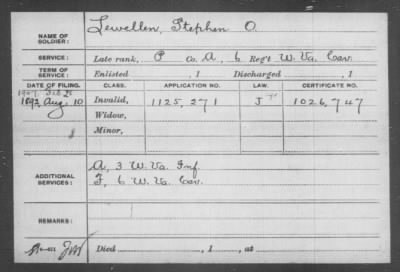 NAME OF SOLDIER: Lewellen, Stephen O.
SERVICE: Late rank, P Co. A, 6 Reg't W. Va. Cav.
TERM OF SERVICE: Enlisted , 1 Discharged , 1
DATE OF FILING. CLASS. APPLICATION NO. LAW. CERTIFICATE NO.
1892, Aug. 10 Invalid, 1125,271 J 1026,747
Widow,
Minor,
ADDITIONAL SERVICES: A, 3 W. Va. Inf.
F, 6 W. Va. Cav.
REMARKS:
Died , 1 , at